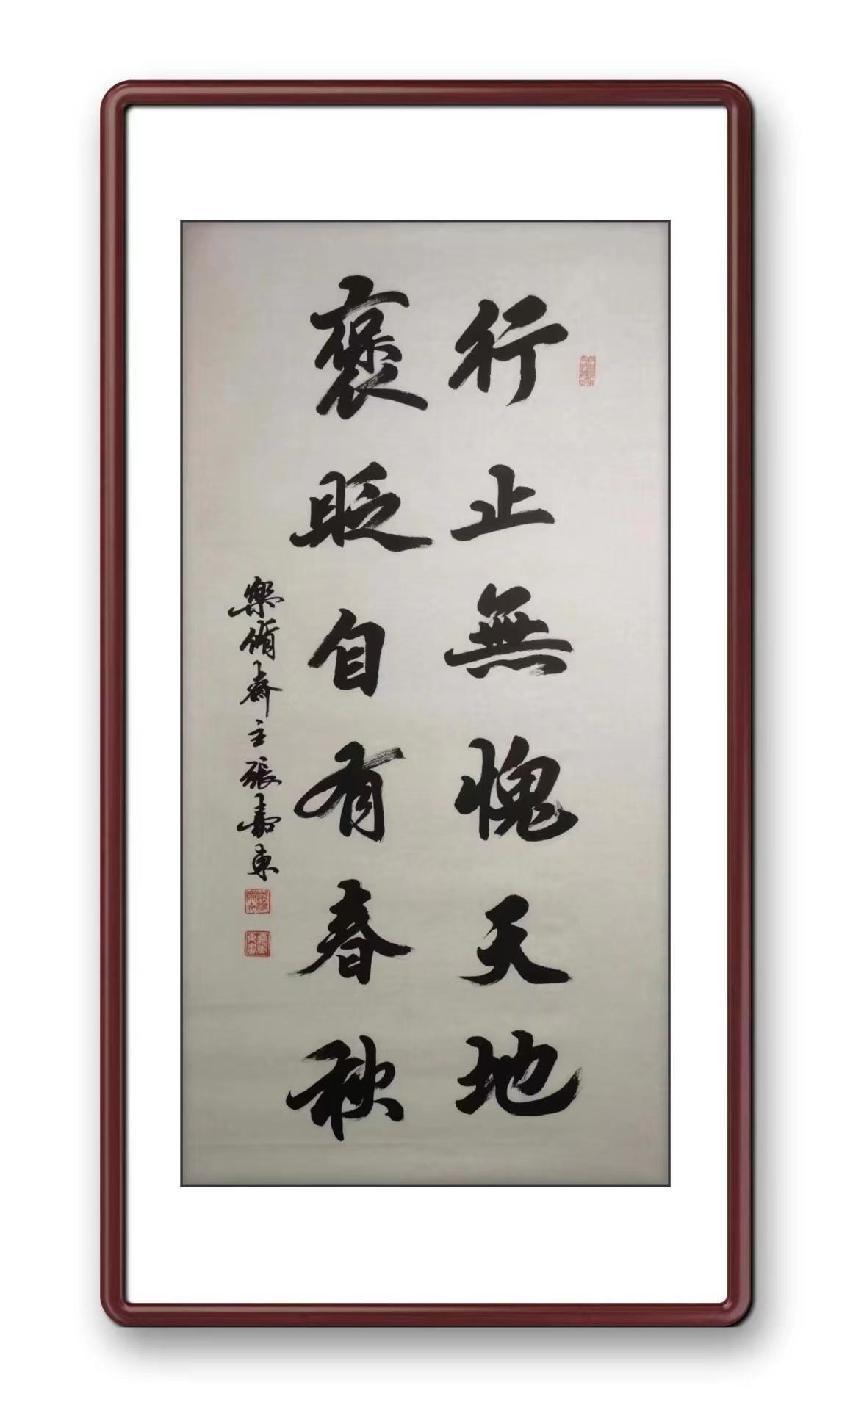 行止無愧天地
褒眨自有春秋
樂脩齋主張嘉東